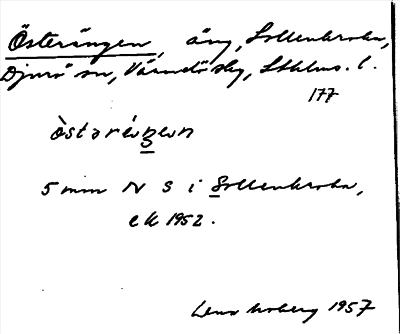 Österängen, äng, Sollenkroka,
Djurö sn, Värmdö skg, Sthlms. l.
177
òstəréŋen
5 mm N S i Sollenkroka,
ek 1952.
Lena Moberg 1957